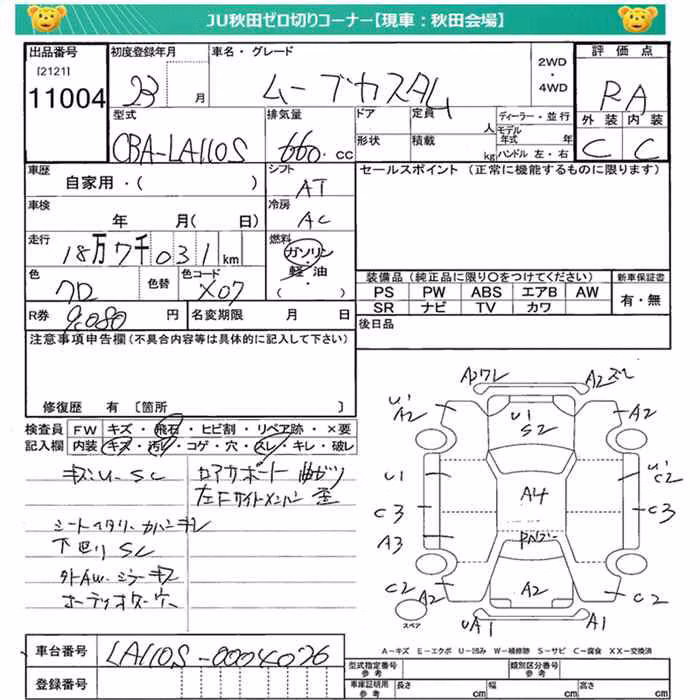 JU秋田ゼロ切りコーナー【現車：秋田会場】
出品番号 [2121] 11004
初度登録年月 23 月
車名・グレード ムーブカスタム
2WD・4WD
評価点 RA
外装 内装
C C
型式 CBA-LA110S
排気量 660 cc
ドア 定員 人
形状 積載 kg
ディーラー・並行
モデル年式 年
ハンドル 左・右
車歴 自家用・( )
シフト AT
セールスポイント（正常に機能するものに限ります）
車検 年 月( 日)
冷房 AC
走行 18万7千031km
燃料 ガソリン・軽油・( )
色 クロ 色替 色コード X07
装備品（純正品に限り○をつけてください） 新車保証書
PS PW ABS エアB AW 有・無
SR ナビ TV カワ
R券 9,080 円 名変期限 月 日
後日品
注意事項申告欄（不具合内容等は具体的に記入して下さい）
修復歴 有 〔箇所 〕
検査員記入欄
FW キズ・飛石・ヒビ割・リペア跡・×要
内装 キズ・汚レ・コゲ・穴・スレ・キレ・破レ
キズU SC
左F サイドメンバー 歪
下廻り SC
外AW. ミラー キズ
A2ワレ A2ズレ
U' A2 A2
U1 S2
U1 U' C2
A4
C3 C3
A3
C2 A2 A2 C2
UA1 A1
スペア
A－キズ E－エクボ U－凹み W－補修跡 S－サビ C－腐食 XX－交換済
車台番号 LA110S-0004026
登録番号
型式指定番号 参考 類別区分番号 参考
車庫証明用 参考 長さ cm 幅 cm 高さ cm